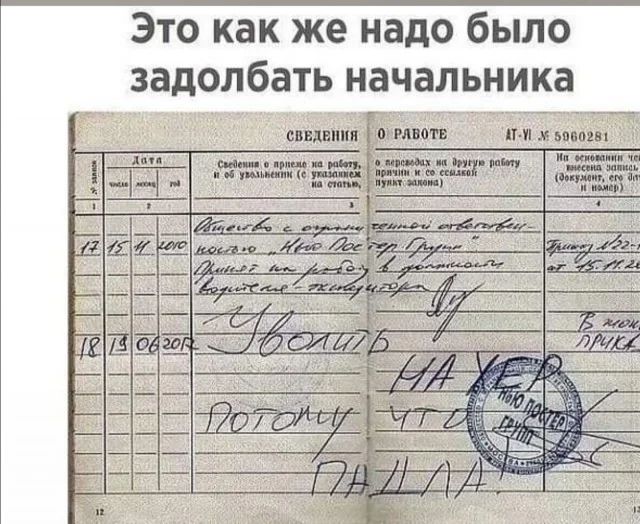 Это как же надо было
задолбать начальника
СВЕДЕНИЯ О РАБОТЕ АТ-VI № 5960281
№ записи
Дата
число месяц год
Сведения о приеме на работу, о переводах на другую работу
и об увольнении (с указанием причин и со ссылкой
на статью, пункт закона)
На основании че
внесена запись
(документ, его да
и номер)
1 2 3 4
Общество с ограниченной ответствен-
17 15 11 2010 ностью „Нью Постер Групп" Приказ №22-
Принят на работу в должности от 15.11.20
водителя-экспедитора
18 19 06 2012 Уволить
НАХЕР
НЬЮ ПОСТЕР
ГРУПП
МОСКВА
Потому что
ПАДЛА!
12
13